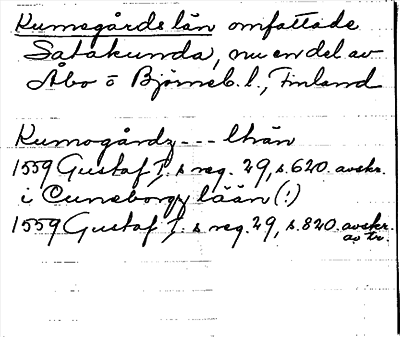 Kumogårds län omfattade
Satakunda, nu en del av
Åbo o Björneb. l., Finland
Kumogårdz --- lhän
1559 Gustaf I. s reg. 29, s. 620. avskr.
i Cuneborgz lään (!)
1559 Gustaf I. s reg. 29, s. 820. avskr.
av tr.